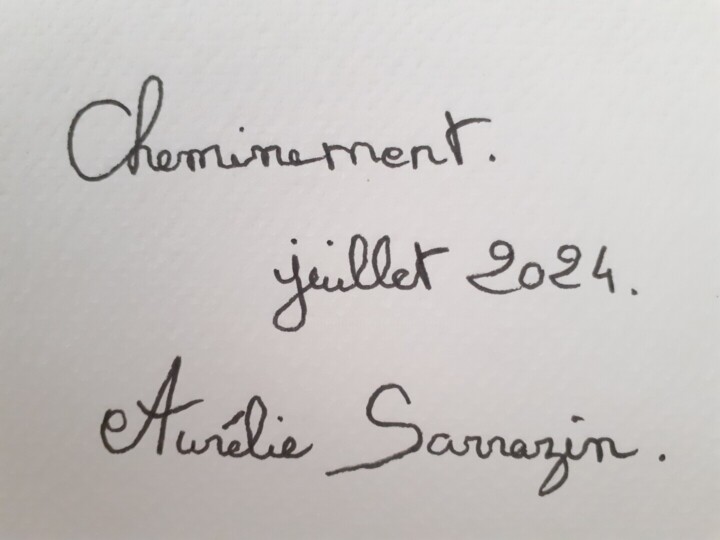 Cheminement.
juillet 2024.
Aurélie Sarrazin.